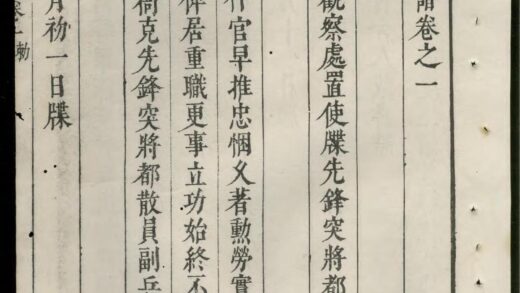 誥卷之一
觀察處置使牒先鋒突將都
官早推忠悃久著勳勞實
俾居重職更事立功始終不
衙充先鋒突將都散員副兵
月初一日牒
勅